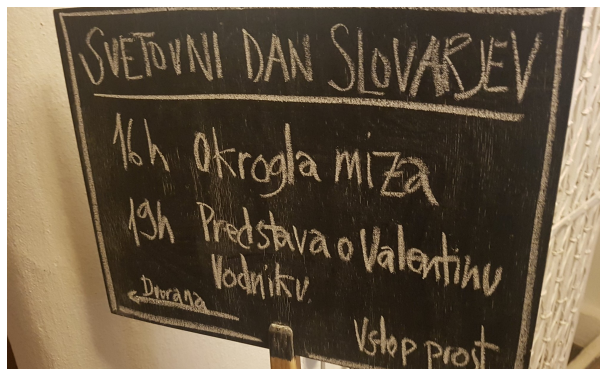 SVETOVNI DAN SLOVARJEV
16h Okrogla miza
19h Predstava o Valentinu
Vodniku
Dvorana
Vstop prost